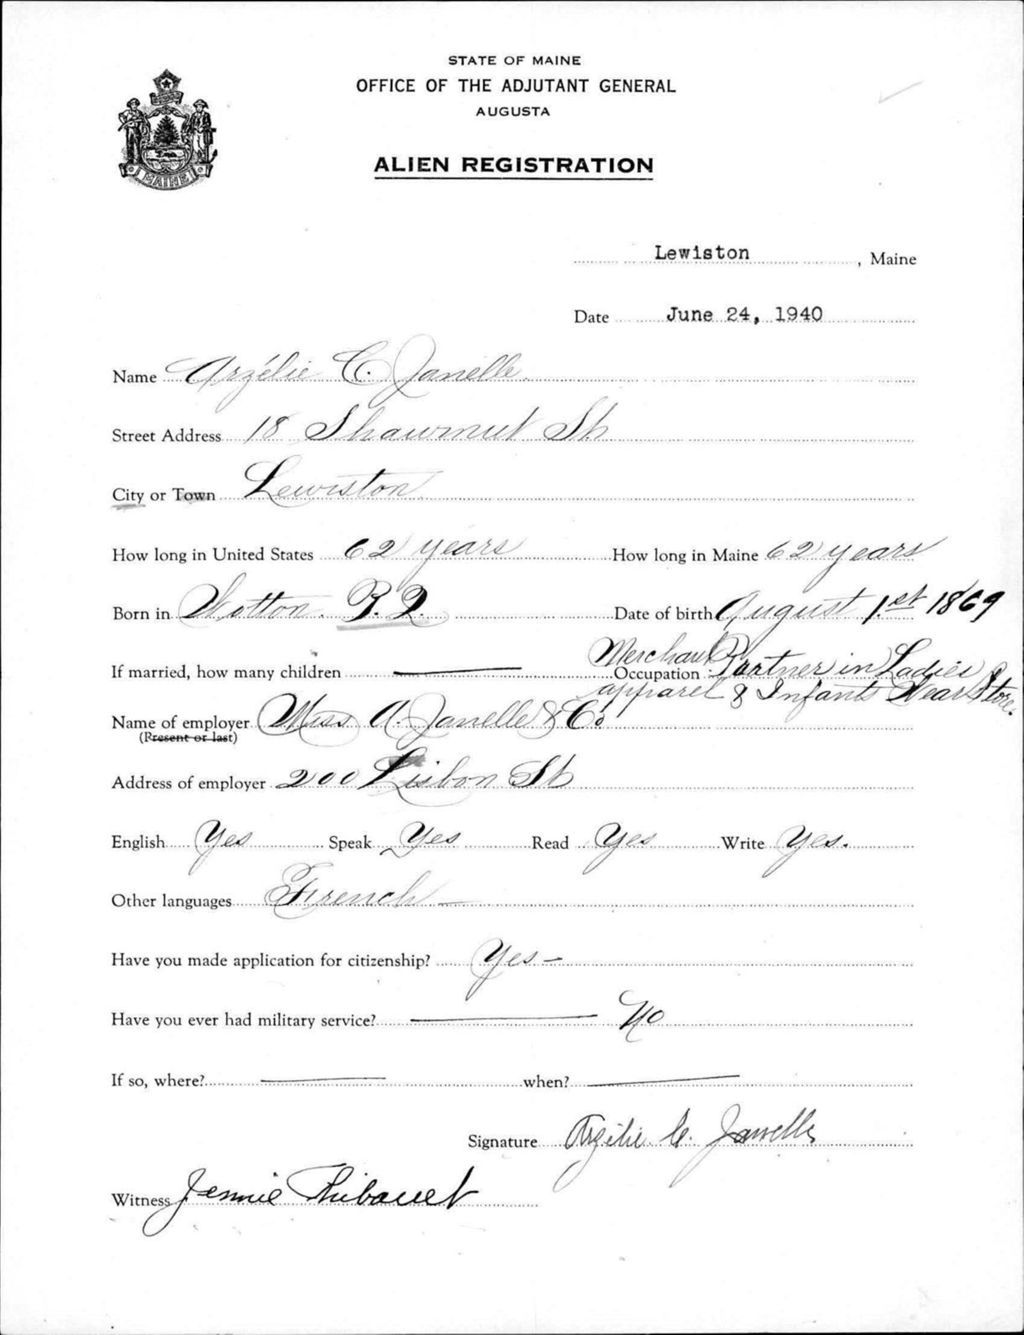 STATE OF MAINE
OFFICE OF THE ADJUTANT GENERAL
AUGUSTA
ALIEN REGISTRATION
MAINE
Lewiston, Maine
Date June 24, 1940
Name Arzélie C. Janelle
Street Address 18 Shawmut St
City or Town Lewiston
How long in United States 62 years How long in Maine 62 years
Born in Wotton. P.Q. Date of birth August 1st 1869
If married, how many children — Occupation Merchant Partner in Ladies
apparel & Infants Wear Store.
Name of employer Miss A. Janelle & Co
(Present or last)
Address of employer 200 Lisbon St
English Yes Speak Yes Read Yes Write Yes.
Other languages French —
Have you made application for citizenship? Yes —
Have you ever had military service? — No
If so, where? — when? —
Signature Arzélie C. Janelle
Witness Jennie Thibault